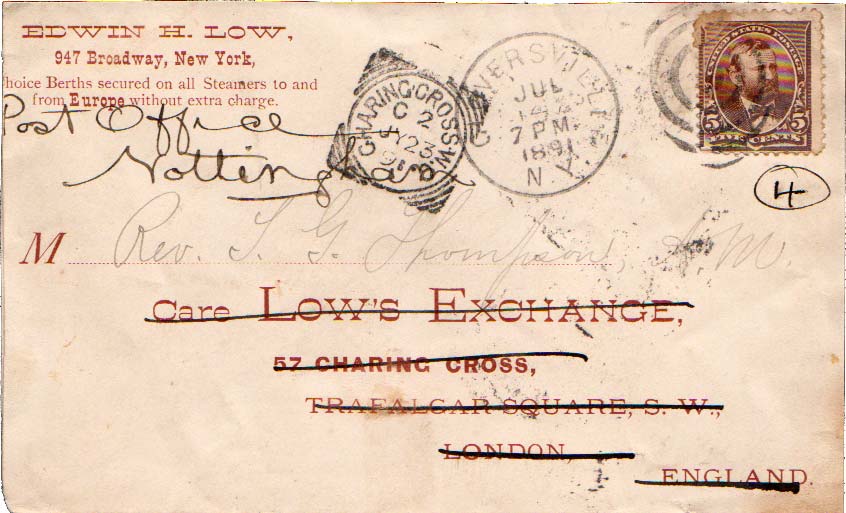 EDWIN H. LOW,
947 Broadway, New York,
hoice Berths secured on all Steamers to and
from Europe without extra charge.
Post Office
Nottingham
CHARING CROSS W
C 2
JY 23
91
OVERSVILLE
JUL
7 PM
1891
N.Y.
UNITED STATES POSTAGE
5 FIVE CENTS 5
4
M Rev. S. G. Thompson, A.M.
Care LOW'S EXCHANGE,
57 CHARING CROSS,
TRAFALGAR SQUARE, S. W.,
LONDON,
ENGLAND.